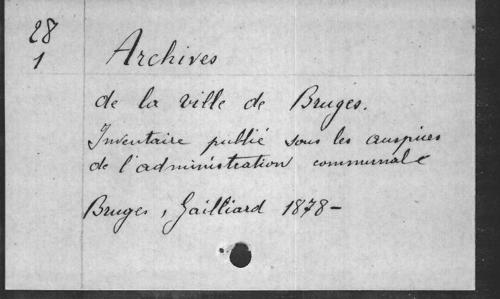 28
1
Archives
de la ville de Bruges.
Inventaire publié sous les auspices
de l'administration communale
Bruges, Gailliard 1878-